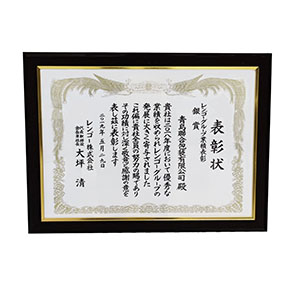 表彰状
レンゴーグループ業績表彰
銀賞
青島聯合包装有限公司 殿
貴社は二〇一八年度において優秀な
業績を収められレンゴーグループの
発展に大きく寄与されました
これ偏に貴社全員の努力の賜であり
その功績に対し深い敬意と感謝の意を
表し茲に表彰します
二〇一九年五月二九日
レンゴー株式会社
大坪 清